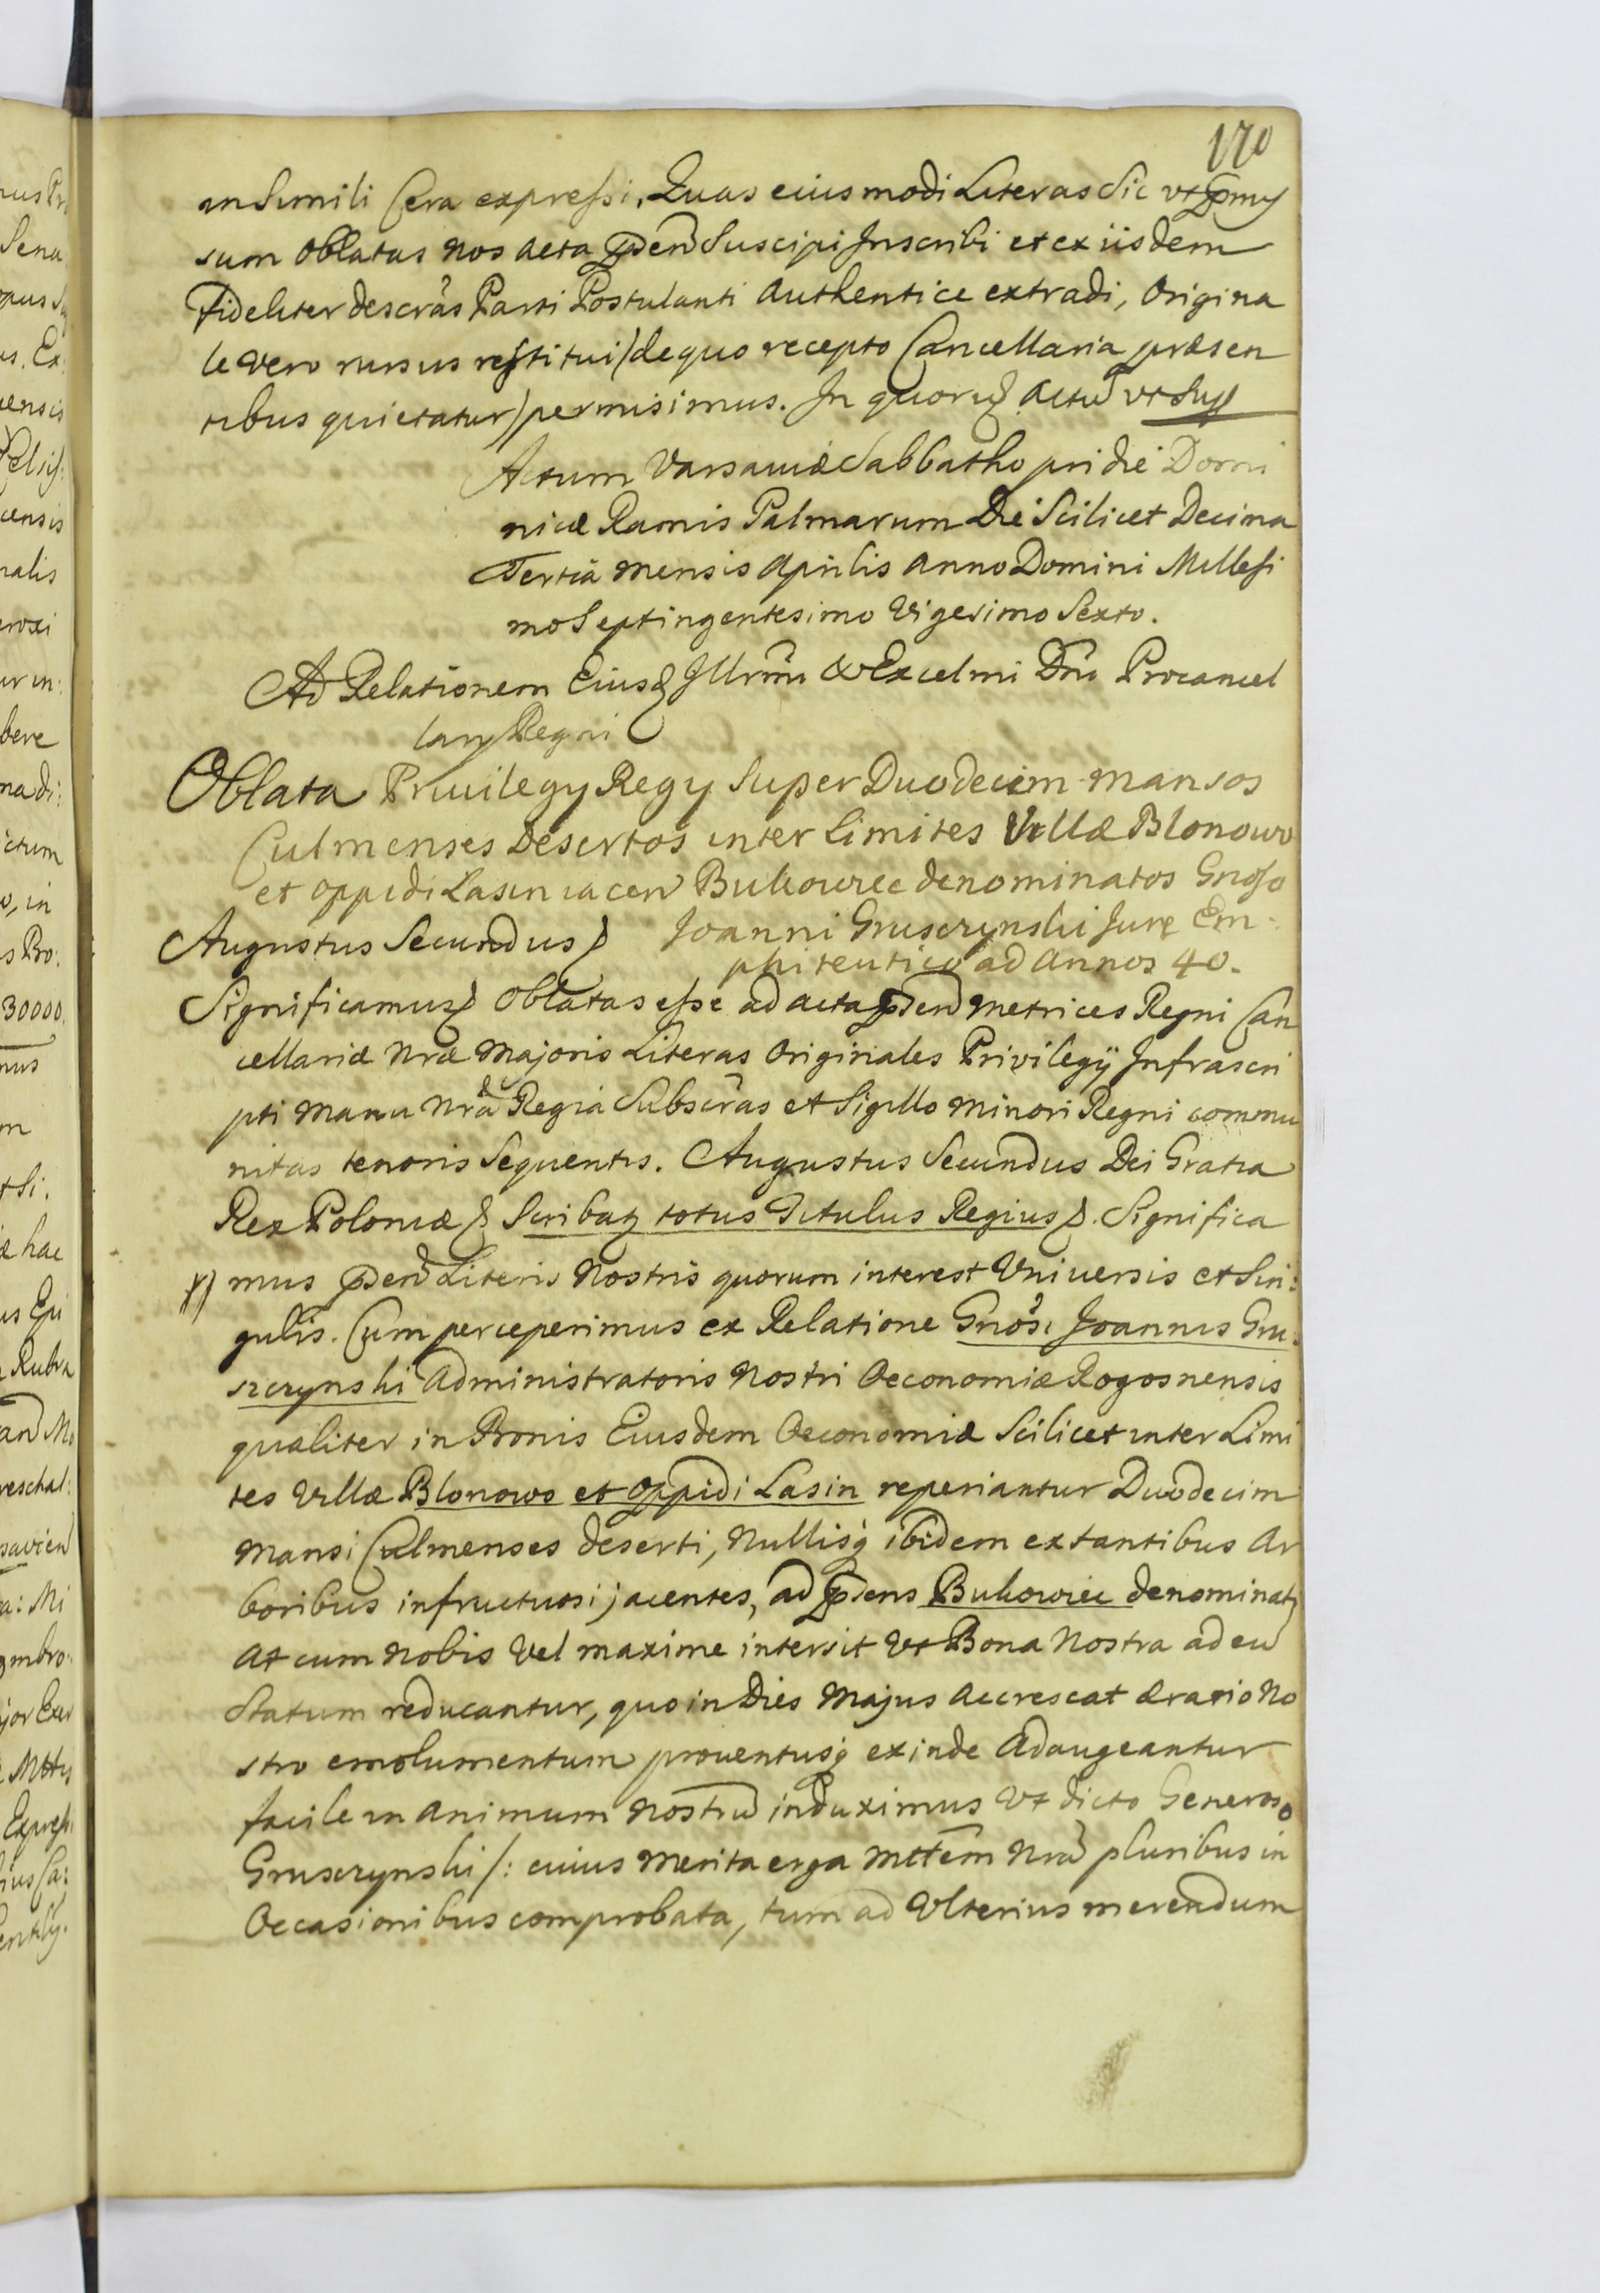 170
in Simili Cera expressi, Quas eiusmodi Literas Sic ut
sum Oblatas Nos Acta Suscipi Inscribi et ex iisdem
Fideliter descras Parti Postulanti Authentice extradi, Origina
le vero rursus restitui /de quo recepto Cancellaria præsen
tibus quietatur/ permisimus. In quorum Actu ut Sup
Actum Varsaviæ Sabbatho pridie Domi
nicæ Ramis Palmarum Die Scilicet Decima
Tertia mensis Aprilis Anno Domini Millesi
mo Septingentesimo Vigesimo Sexto.
Ad Relationem Eiusd Illrmi & Excelmi Dni Procancel
larij Regni
Oblata Privilegij Regij Super Duodecim Mansos
Culmenses Desertos inter Limites Villæ Blonowo
et Oppidi Lasin iacen Bukowiec denominatos Gnoso
Augustus Secundus Joanni Gruscrynski Jure Em-
phiteutico ad Annos 40.
Significamus Oblatas esse ad Acta Metrices Regni Can
cellariæ Nræ Majoris Literas Originales Privilegij Infrascri
pti Manu Nra Regia Subscras et Sigillo Minori Regni commu
nitas tenoris Sequentis. Augustus Secundus Dei Gratia
Rex Poloniæ Scribat totus Titulus Regius. Significa
mus Literis Nostris quorum interest Universis et Sin:
gulis. Cum perceperimus ex Relatione Gnosi Joannis Gru:
szczynski Administratoris Nostri Oeconomiæ Rogosnensis
qualiter in Bonis Eiusdem Oeconomiæ Scilicet inter Limi
tes Villæ Blonowo et Oppidi Lasin reperiantur Duodecim
Mansi Culmenses deserti, Nullisq ibidem extantibus Ar
boribus infructuosi jacentes, ad Bukowiec denominati
At cum Nobis Vel maxime intersit Ut Bona Nostra ad eu
Statum reducantur, quo in Dies Majus Accrescat ærario No
stro emolumentum proventusq exinde Adaugeantur
facile in Animum Nostru induximus Ut dicto Generoso
Gruscrynski /: cuius Merita erga Mttem Nra pluribus in
Occasionibus comprobata, tum ad Ulterius merendum